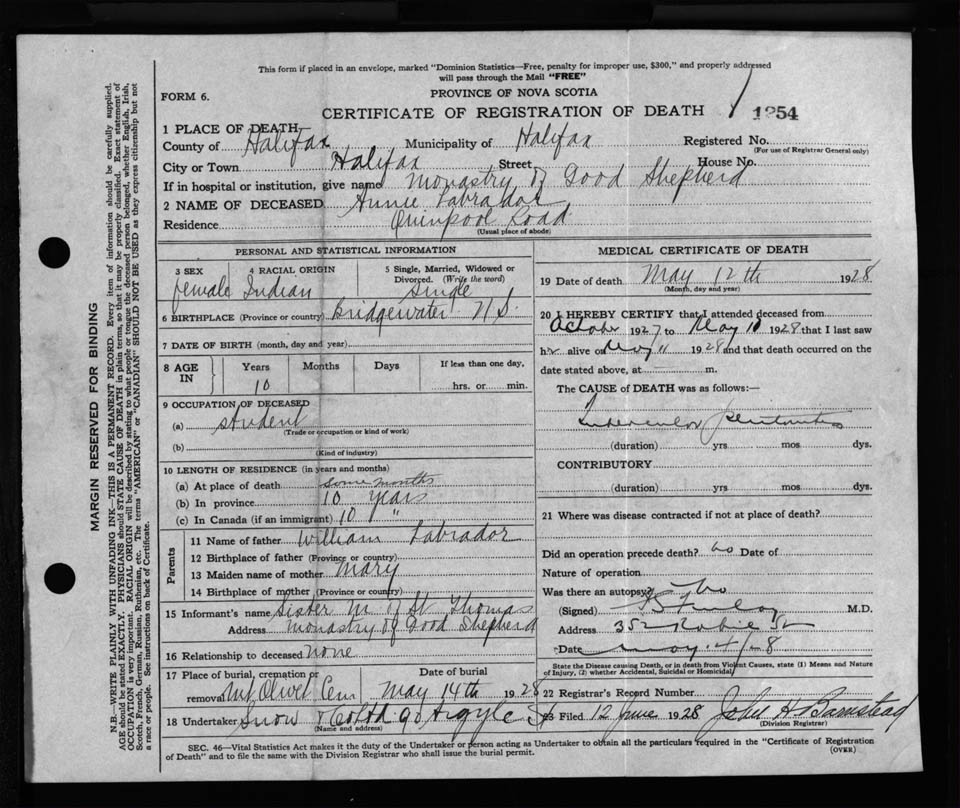 This form if placed in an envelope, marked "Dominion Statistics—Free, penalty for improper use, $300," and properly addressed
will pass through the Mail "FREE"
FORM 6.
PROVINCE OF NOVA SCOTIA
CERTIFICATE OF REGISTRATION OF DEATH
1254
1 PLACE OF DEATH
County of Halifax Municipality of Halifax Registered No.
(For use of Registrar General only)
City or Town Halifax Street House No.
If in hospital or institution, give name Monastry of Good Shepherd
2 NAME OF DECEASED Annie Labrador
Residence Quinpool Road
(Usual place of abode)
PERSONAL AND STATISTICAL INFORMATION
3 SEX 4 RACIAL ORIGIN 5 Single, Married, Widowed or
Divorced. (Write the word)
female Indian Single
6 BIRTHPLACE (Province or country) Bridgewater N.S.
7 DATE OF BIRTH (month, day and year)
8 AGE IN Years Months Days If less than one day,
10 hrs. or min.
9 OCCUPATION OF DECEASED
(a) student
(Trade or occupation or kind of work)
(b)
(Kind of industry)
10 LENGTH OF RESIDENCE (in years and months)
(a) At place of death some months
(b) In province 10 years
(c) In Canada (if an immigrant) 10 "
Parents
11 Name of father William Labrador
12 Birthplace of father (Province or country)
13 Maiden name of mother Mary
14 Birthplace of mother (Province or country)
15 Informant's name Sister M of St Thomas
Address Monastry of Good Shepherd
16 Relationship to deceased none
17 Place of burial, cremation or Date of burial
removal Mt Olivet Cem May 14th 1928
18 Undertaker Snow & Co Ltd 90 Argyle St
(Name and address)
MEDICAL CERTIFICATE OF DEATH
19 Date of death May 12th 1928
(Month, day and year)
20 I HEREBY CERTIFY that I attended deceased from
October 1927 to May 10 1928 that I last saw
her alive on May 11 1928 and that death occurred on the
date stated above, at — m.
The CAUSE of DEATH was as follows:—
Tubercular peritonitis
(duration) yrs mos dys.
CONTRIBUTORY
(duration) yrs mos dys.
21 Where was disease contracted if not at place of death?
Did an operation precede death? no Date of
Nature of operation
Was there an autopsy? No
(Signed) M.D.
Address 352 Robie St
Date May 28
State the Disease causing Death, or in death from Violent Causes, state (1) Means and Nature
of Injury, (2) whether Accidental, Suicidal or Homicidal
22 Registrar's Record Number
23 Filed 12 June 1928 John H Barnstead
(Division Registrar)
SEC. 46—Vital Statistics Act makes it the duty of the Undertaker or person acting as Undertaker to obtain all the particulars required in the "Certificate of Registration
of Death" and to file the same with the Division Registrar who shall issue the burial permit.
(OVER)
MARGIN RESERVED FOR BINDING
N.B.—WRITE PLAINLY WITH UNFADING INK—THIS IS A PERMANENT RECORD. Every item of information should be carefully supplied.
AGE should be stated EXACTLY. PHYSICIANS should STATE CAUSE OF DEATH in plain terms, so that it may be properly classified. Exact statement of
OCCUPATION is very important. RACIAL ORIGIN will be described by stating to what people or tongue the deceased person belonged, whether English, Irish,
Scotch, French, German, Russian, Ruthenian, etc. The terms "AMERICAN" or "CANADIAN" SHOULD NOT BE USED as they express citizenship but not
a race or people. See instructions on back of Certificate.